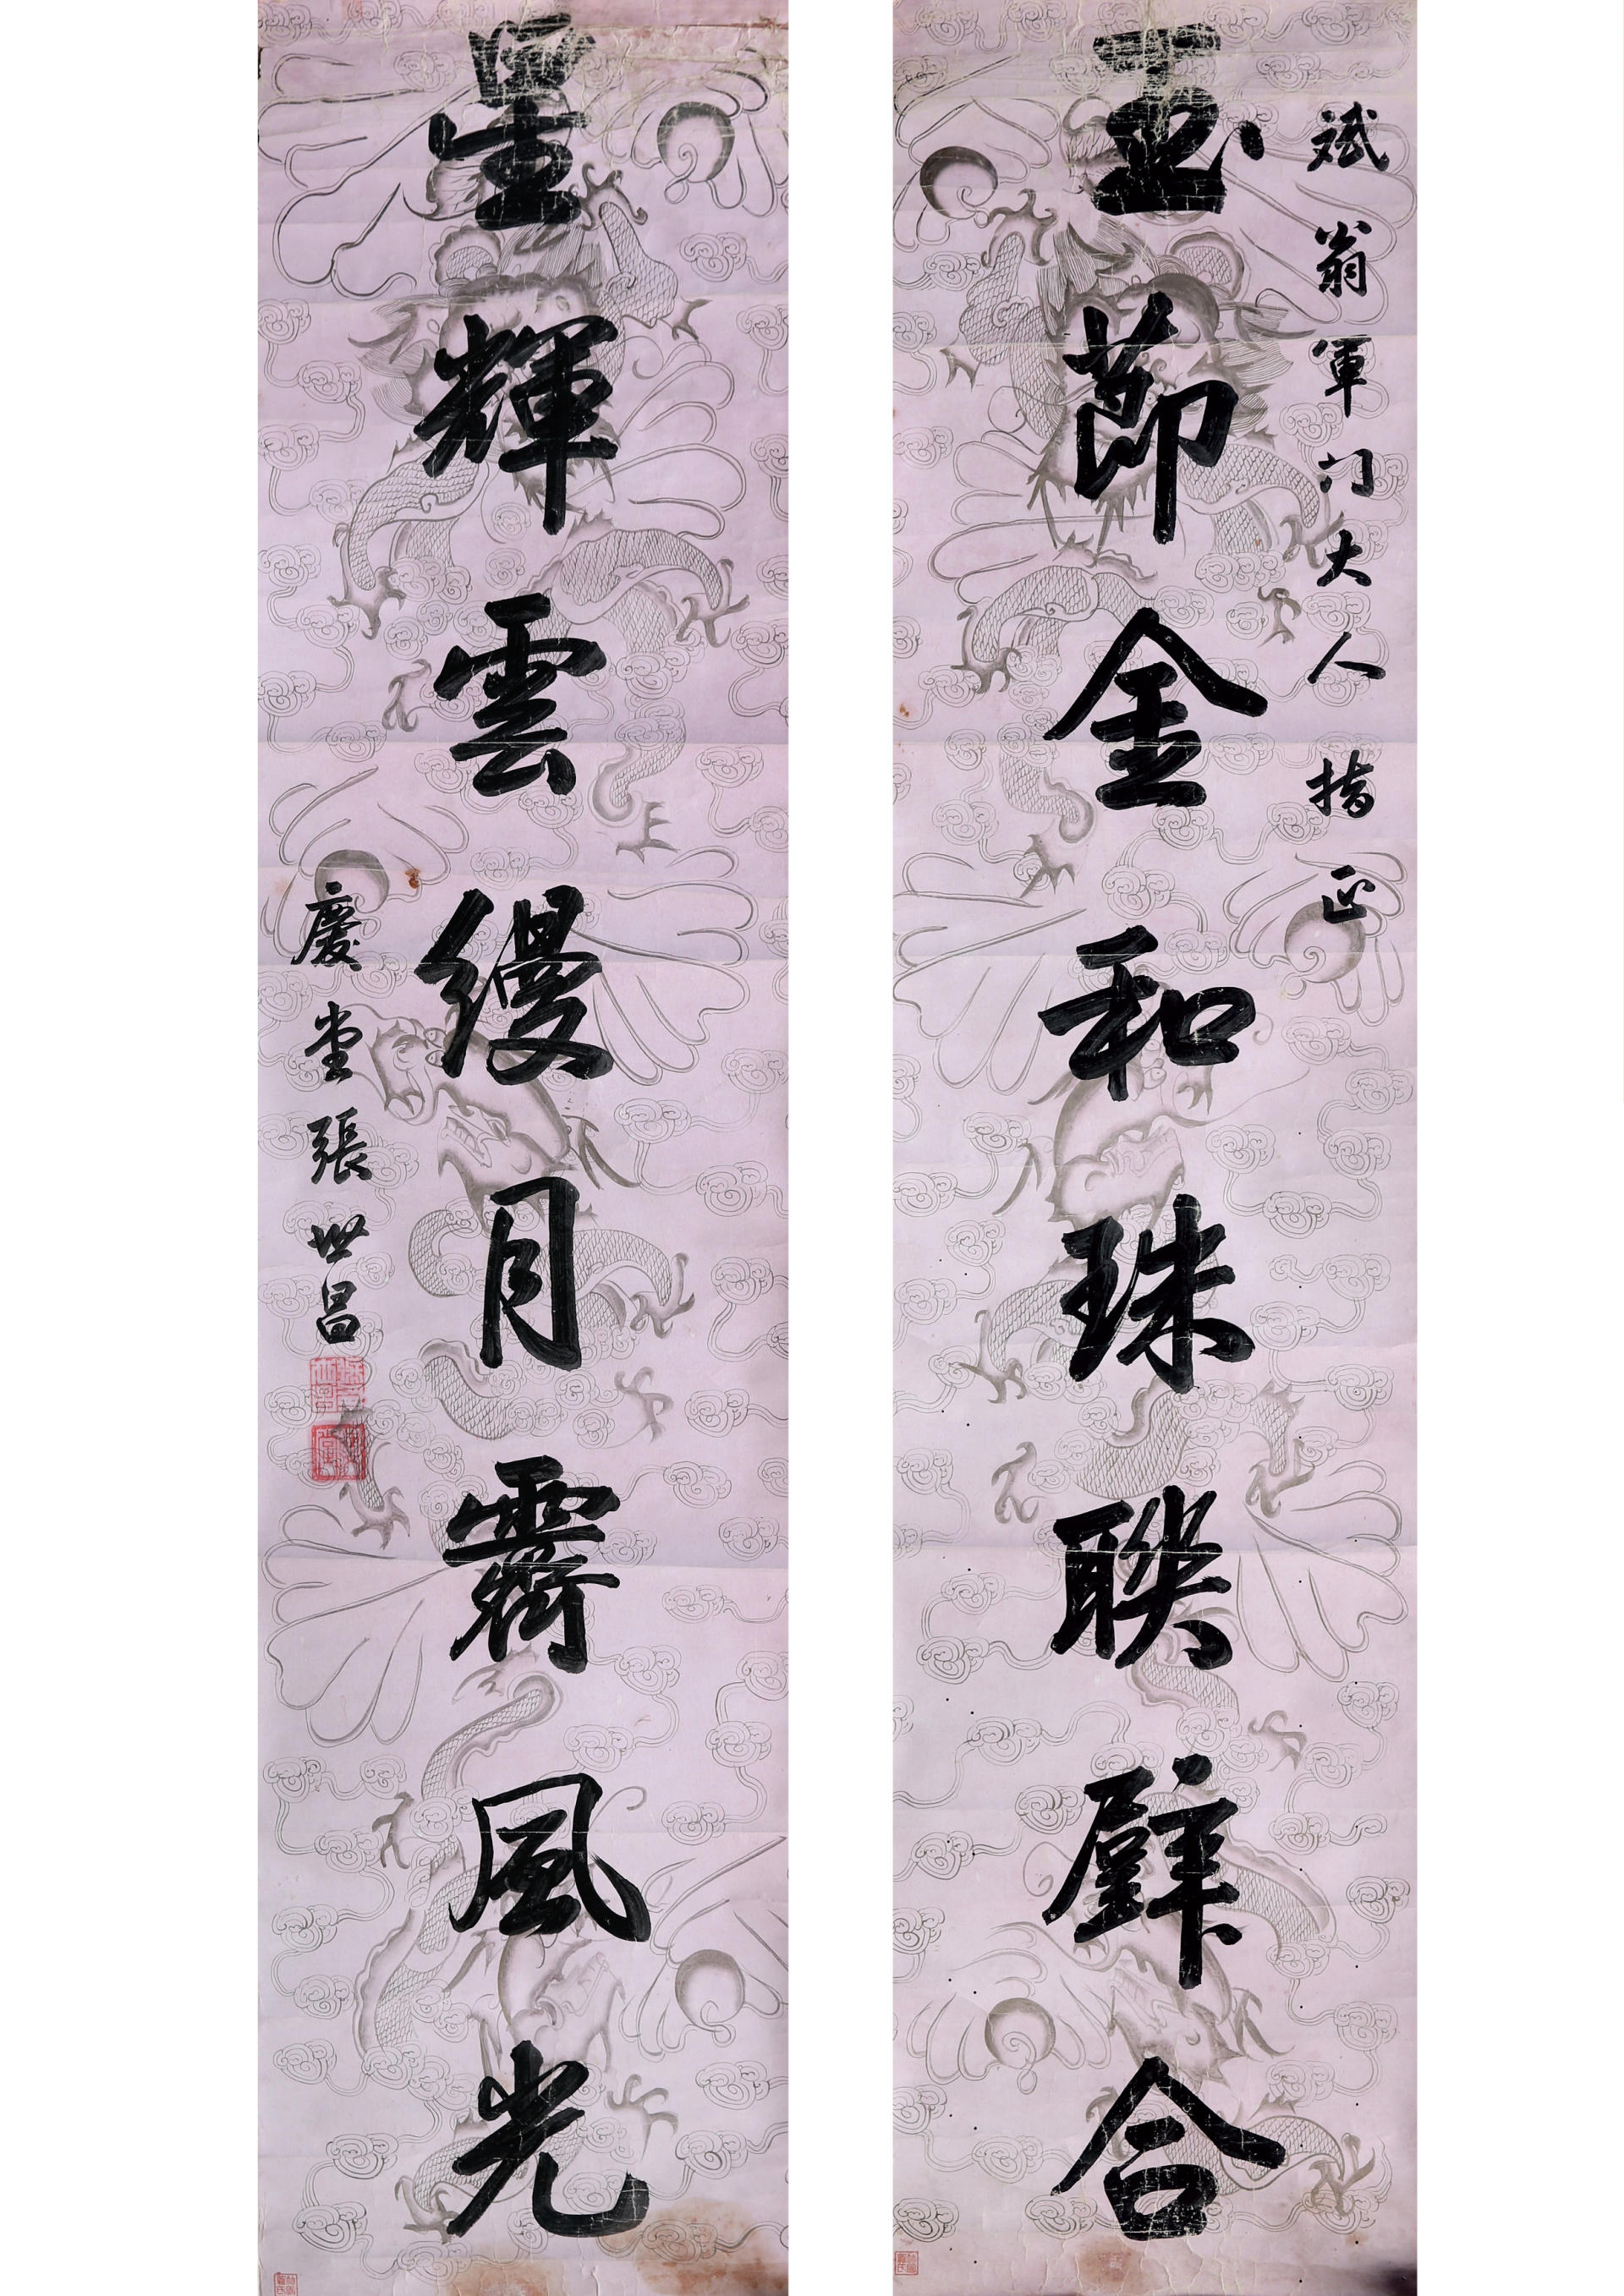 斌翁軍门大人指正
玉節金和珠聯璧合
星輝雲縵月霽風光
慶堂張世昌